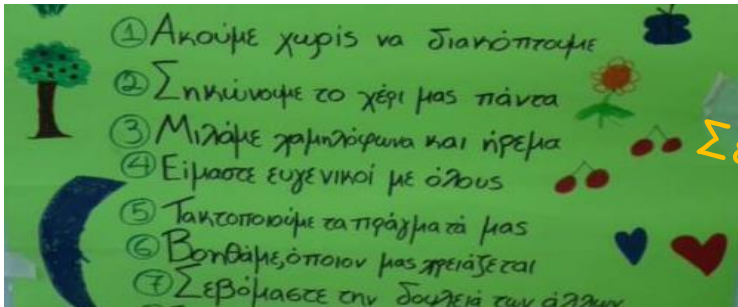 ① Ακούμε χωρίς να διακόπτουμε
② Σηκώνουμε το χέρι μας πάντα
③ Μιλάμε χαμηλόφωνα και ήρεμα
④ Είμαστε ευγενικοί με όλους
⑤ Τακτοποιούμε τα πράγματά μας
⑥ Βοηθάμε, όποιον μας χρειάζεται
⑦ Σεβόμαστε την δουλειά των άλλων